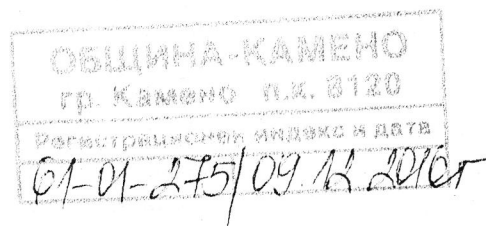 ОБЩИНА-КАМЕНО
гр. Камено п.к. 8120
Регистрационен индекс и дата
61-01-275/09.12.2016г